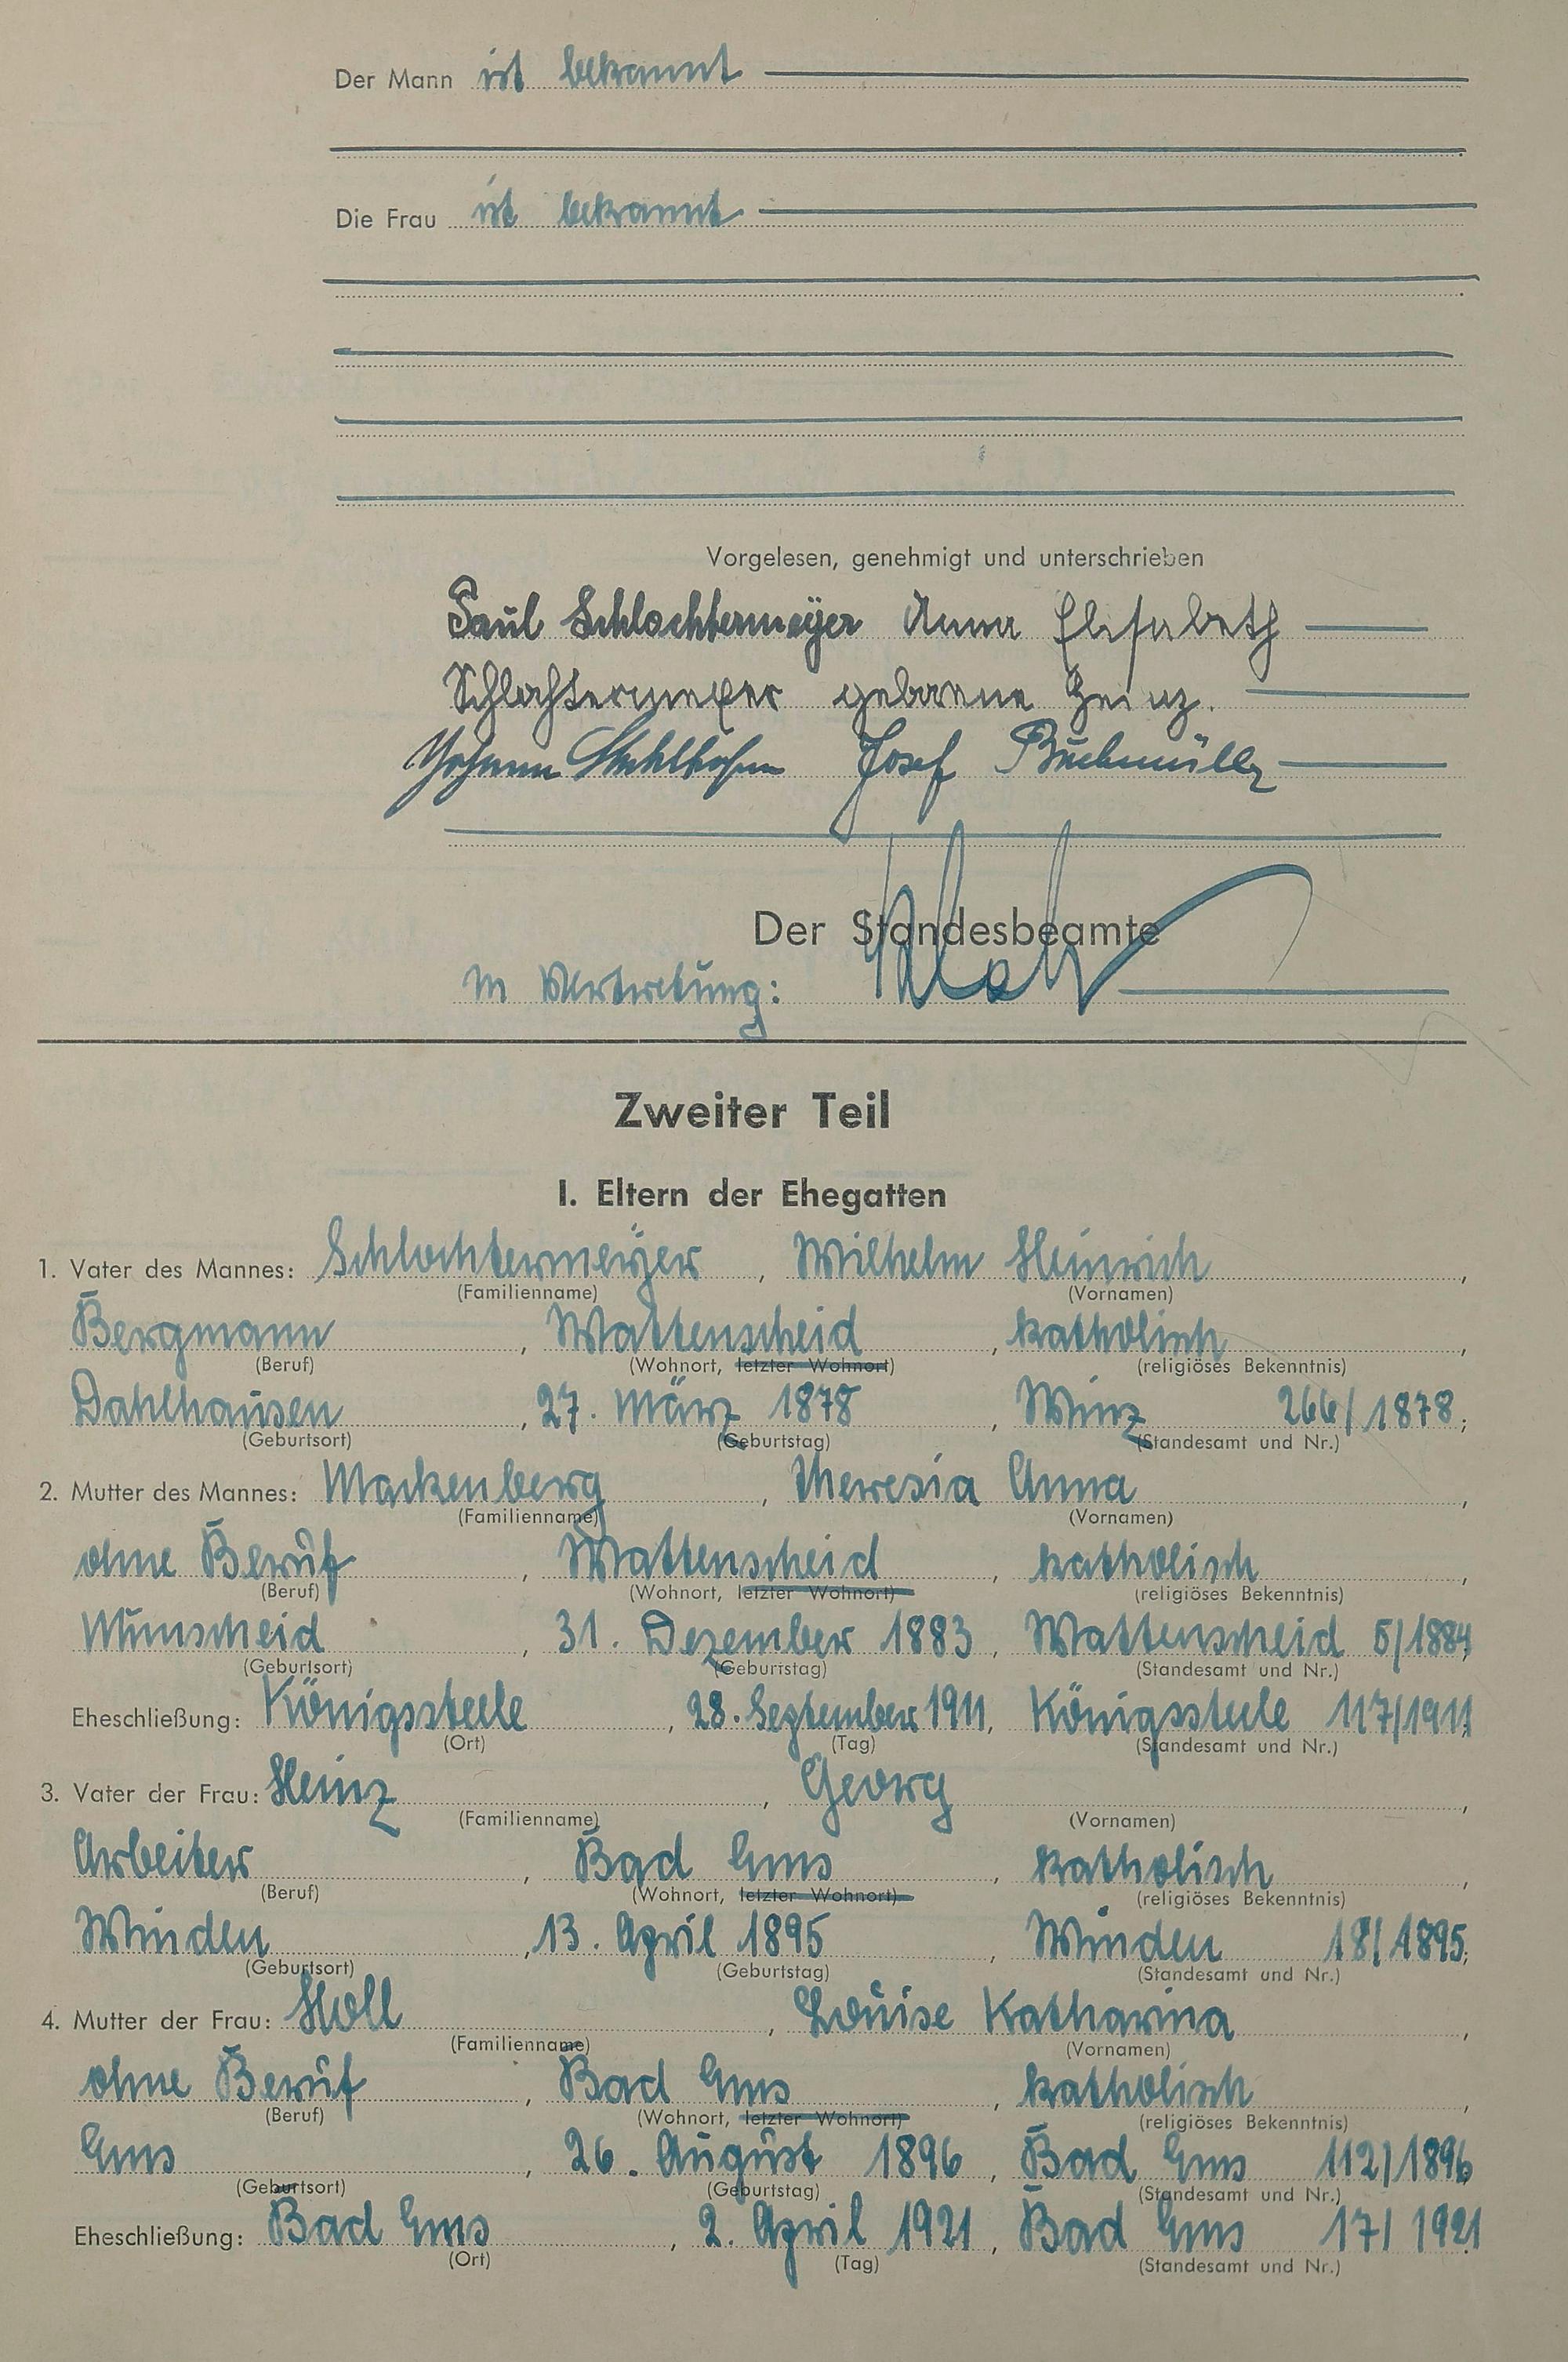 Der Mann ist bekannt
Die Frau ist bekannt
Vorgelesen, genehmigt und unterschrieben
Paul Schlochtermeÿer Anna Elisabeth
Schlochtermeyer geborene Heinz.
Johann Stahlhofen Josef Buchmüller
Der Standesbeamte
In Vertretung:
Zweiter Teil
I. Eltern der Ehegatten
1. Vater des Mannes: Schlochtermeÿer, Wilhelm Heinrich,
(Familienname) (Vornamen)
Bergmann, Wattenscheid, katholisch,
(Beruf) (Wohnort, letzter Wohnort) (religiöses Bekenntnis)
Dahlhausen, 27. März 1878, Winz 266/1878;
(Geburtsort) (Geburtstag) (Standesamt und Nr.)
2. Mutter des Mannes: Mackenberg, Theresia Anna,
(Familienname) (Vornamen)
ohne Beruf, Wattenscheid, katholisch,
(Beruf) (Wohnort, letzter Wohnort) (religiöses Bekenntnis)
, 31. Dezember 1883, Wattenscheid 5/1884;
(Geburtsort) (Geburtstag) (Standesamt und Nr.)
Eheschließung: Königssteele, 28. September 1911, Königssteele 117/1911;
(Ort) (Tag) (Standesamt und Nr.)
3. Vater der Frau: Heinz, Georg,
(Familienname) (Vornamen)
Arbeiter, Bad Ems, katholisch,
(Beruf) (Wohnort, letzter Wohnort) (religiöses Bekenntnis)
Winden, 13. April 1895, Winden 18/1895;
(Geburtsort) (Geburtstag) (Standesamt und Nr.)
4. Mutter der Frau: Holl, Louise Katharina,
(Familienname) (Vornamen)
ohne Beruf, Bad Ems, katholisch,
(Beruf) (Wohnort, letzter Wohnort) (religiöses Bekenntnis)
Ems, 26. August 1896, Bad Ems 112/1896
(Geburtsort) (Geburtstag) (Standesamt und Nr.)
Eheschließung: Bad Ems, 2. April 1921, Bad Ems 17/1921.
(Ort) (Tag) (Standesamt und Nr.)